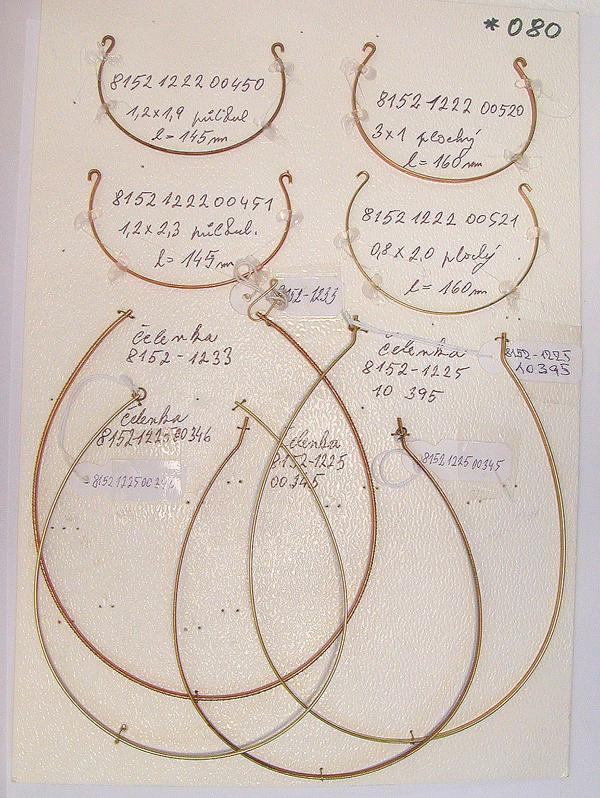 *080
8152 1222 00450
1,2x1,9 půlkul
l=145mm
8152 1222 00520
3x1 plochý
l=160mm
8152 1222 00451
1,2x2,3 půlkul.
l=145mm
8152 1222 00521
0,8x2,0 plochý
l=160mm
8152-1233
čelenka
8152-1233
čelenka
8152-1225
10 395
8152-1225
10395
čelenka
8152 1225 00346
čelenka
8152-1225
00345
8152 1225 00345